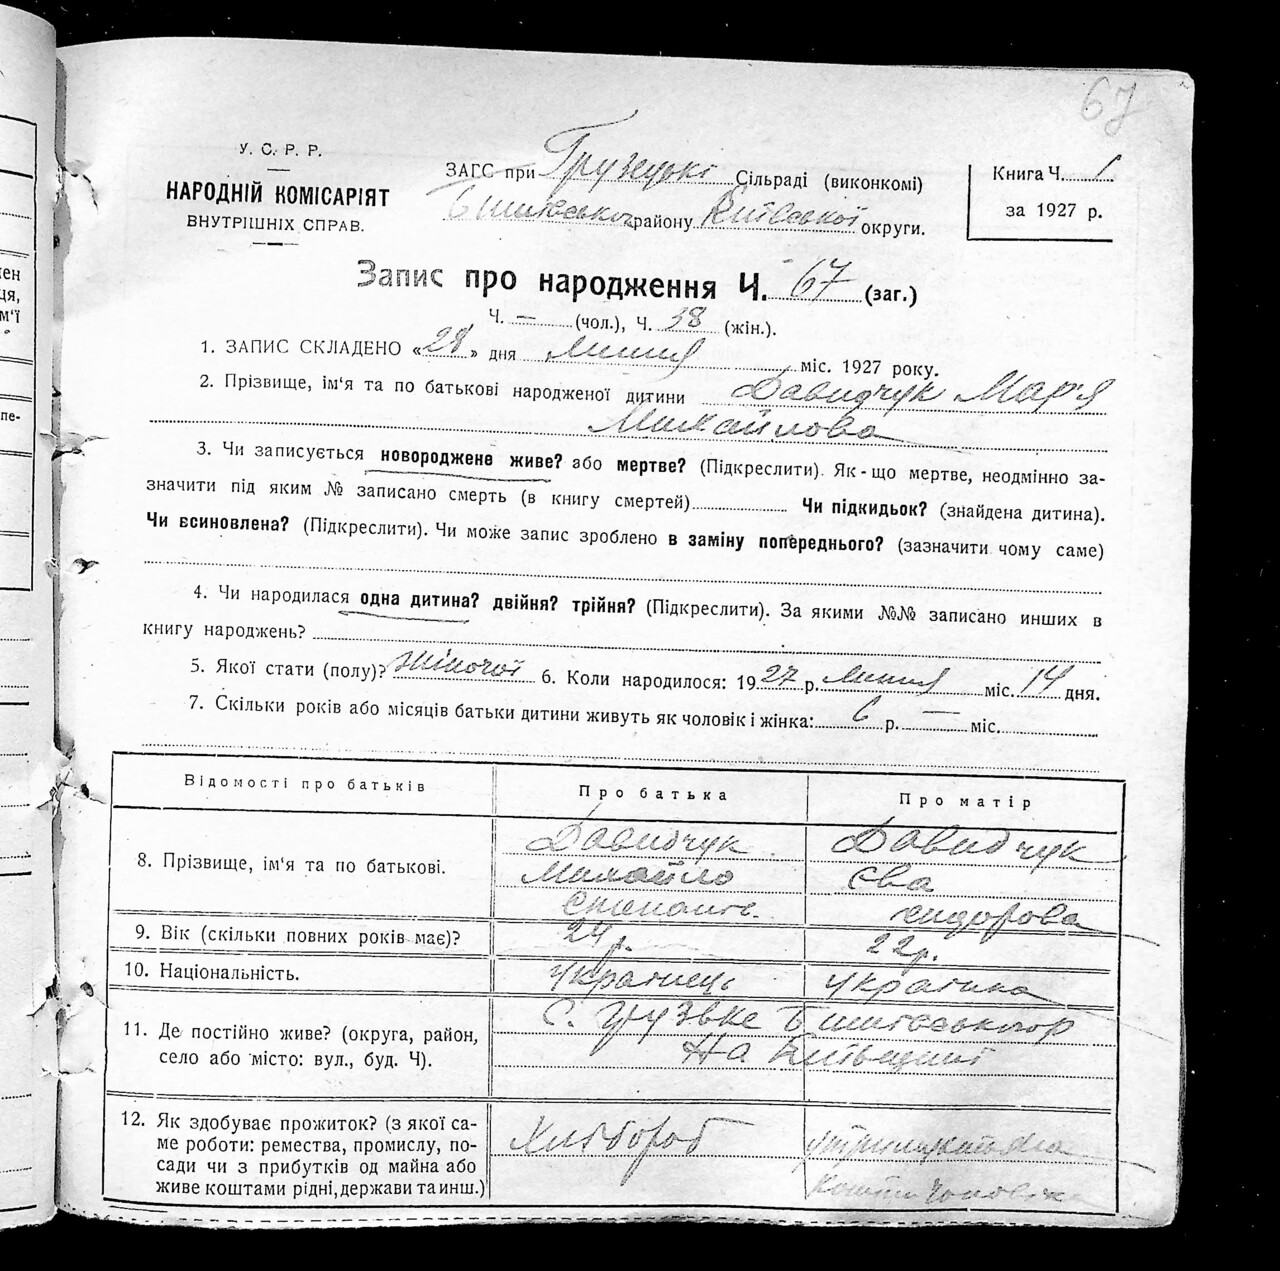 67
У. С. Р. Р.
НАРОДНІЙ КОМІСАРІЯТ
ВНУТРІШНІХ СПРАВ.
ЗАГС при Грузецькі Сільраді (виконкомі)
району Київської округи.
Книга Ч. 1
за 1927 р.
Запис про народження Ч. 67 (заг.)
Ч. — (чол.), Ч. 38 (жін.).
1. ЗАПИС СКЛАДЕНО «28» дня липня міс. 1927 року.
2. Прізвище, ім'я та по батькові народженої дитини Давидчук Мар'я
Михайлова
3. Чи записується новороджене живе? або мертве? (Підкреслити). Як-що мертве, неодмінно за-
значити під яким № записано смерть (в книгу смертей) Чи підкидьок? (знайдена дитина).
Чи всиновлена? (Підкреслити). Чи може запис зроблено в заміну попереднього? (зазначити чому саме)
4. Чи народилася одна дитина? двійня? трійня? (Підкреслити). За якими №№ записано инших в
книгу народжень?
5. Якої стати (полу)? жіночої 6. Коли народилося: 1927 р. липня міс. 14 дня.
7. Скільки років або місяців батьки дитини живуть як чоловік і жінка: 6 р. — міс.
Відомості про батьків
Про батька
Про матір
8. Прізвище, ім'я та по батькові.
Давидчук
Михайло
Степанов.
Давидчук
Єва
Сидорова
9. Вік (скільки повних років має)?
24 р.
22 р.
10. Національність.
Українець
Українка
11. Де постійно живе? (округа, район,
село або місто: вул., буд. Ч).
с. Грузьке
на Київщині
12. Як здобуває прожиток? (з якої са-
ме роботи: ремества, промислу, по-
сади чи з прибутків од майна або
живе коштами рідні, держави та инш.)
Хлібороб
кошти чоловіка